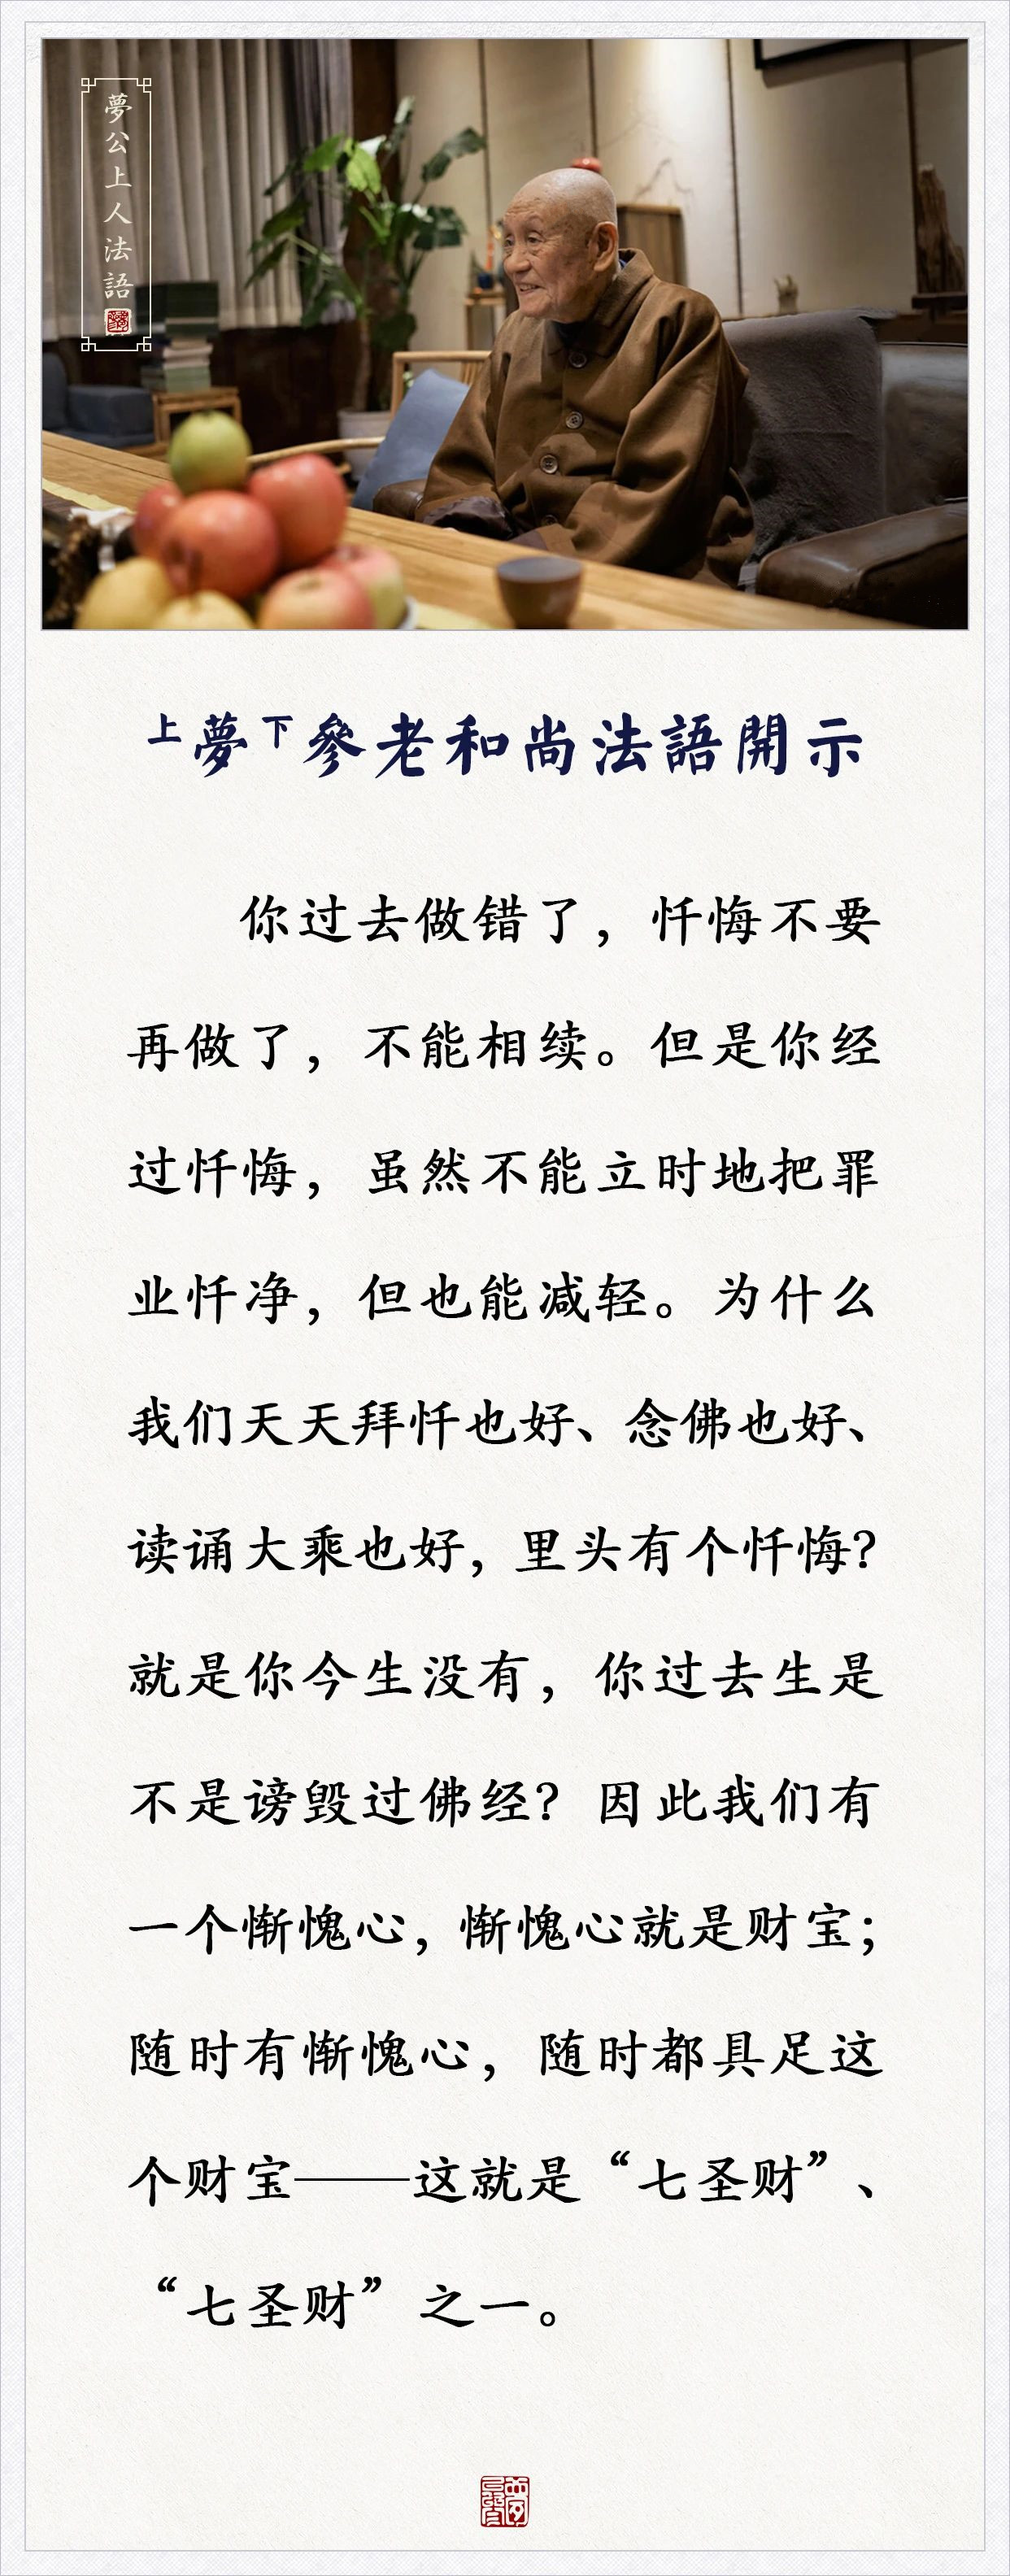 夢公上人法語
上夢下參老和尚法語開示
你过去做错了，忏悔不要
再做了，不能相续。但是你经
过忏悔，虽然不能立时地把罪
业忏净，但也能减轻。为什么
我们天天拜忏也好、念佛也好、
读诵大乘也好，里头有个忏悔？
就是你今生没有，你过去生是
不是谤毁过佛经？因此我们有
一个惭愧心，惭愧心就是财宝；
随时有惭愧心，随时都具足这
个财宝——这就是“七圣财”、
“七圣财”之一。